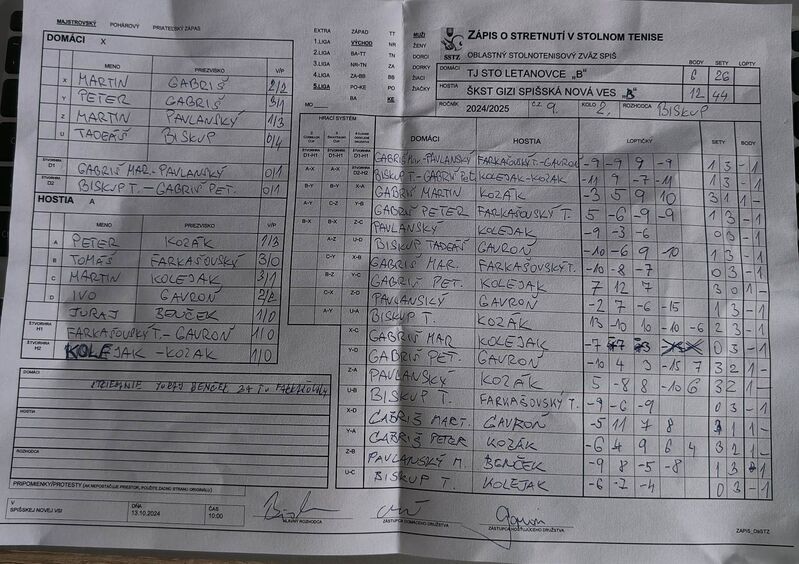 MAJSTROVSKÝ POHÁROVÝ PRIATEĽSKÝ ZÁPAS
DOMÁCI X
MENO PRIEZVISKO V/P
X MARTIN GABRIŠ 2/2
Y PETER GABRIŠ 3/1
Z MARTIN PAVLANSKÝ 1/3
U TADEÁŠ BISKUP 0/4
ŠTVORHRA D1 GABRIŠ MAR.-PAVLANSKÝ 0/1
ŠTVORHRA D2 BISKUP T.-GABRIŠ PET. 0/1
HOSTIA A
MENO PRIEZVISKO V/P
A PETER KOZÁK 1/3
B TOMÁŠ FARKAŠOVSKÝ 3/0
C MARTIN KOLEJAK 3/1
D IVO GAVROŇ 2/2
JURAJ BENČEK 1/0
ŠTVORHRA H1 FARKAŠOVSKÝ T.-GAVROŇ 1/0
ŠTVORHRA H2 KOLEJAK-KOZÁK 1/0
DOMÁCI
STRIEDANIE JURAJ BENČEK ZA T. FARKAŠOVSKÝ
HOSTIA
ROZHODCA
PRIPOMIENKY/PROTESTY (AK NEPOSTAČUJE PRIESTOR, POUŽITE ZADNÚ STRANU ORIGINÁLU)
V SPIŠSKEJ NOVEJ VSI
DŇA 13.10.2024
ČAS 10:00
HLAVNÝ ROZHODCA
ZÁSTUPCA DOMÁCEHO DRUŽSTVA
ZÁSTUPCA HOSŤUJÚCEHO DRUŽSTVA
ZÁPIS_ObSTZ
EXTRA ZÁPAD TT
1.LIGA VÝCHOD NR
2.LIGA BA-TT TN
3.LIGA NR-TN ZA
4.LIGA ZA-BB BB
5.LIGA PO-KE PO
MO BA KE
MUŽI
ŽENY
DORCI
DORKY
ŽIACI
ŽIAČKY
SSTZ
ZÁPIS O STRETNUTÍ V STOLNOM TENISE
OBLASTNÝ STOLNOTENISOVÝ ZVÄZ SPIŠ
BODY SETY LOPTY
DOMÁCI TJ STO LETANOVCE „B" 6 26
HOSTIA ŠKST GIZI SPIŠSKÁ NOVÁ VES „B" 12 44
ROČNÍK 2024/2025 Č.Z. 9. KOLO 2. ROZHODCA BISKUP
HRACÍ SYSTÉM
DOMÁCI HOSTIA LOPTIČKY SETY BODY
D1-H1 GABRIŠ MAR.-PAVLANSKÝ FARKAŠOVSKÝ T.-GAVROŇ -9 -9 9 -9 1 3 - 1
D2-H2 BISKUP T.-GABRIŠ PET. KOLEJAK-KOZÁK -11 9 -7 -11 1 3 - 1
X-A GABRIŠ MARTIN KOZÁK -3 5 9 10 3 1 1 -
Y-B GABRIŠ PETER FARKAŠOVSKÝ T. 5 -6 -9 -9 1 3 - 1
Z-C PAVLANSKÝ KOLEJAK -9 -3 -6 0 3 - 1
U-D BISKUP TADEÁŠ GAVROŇ -10 -6 9 -10 1 3 - 1
X-B GABRIŠ MAR. FARKAŠOVSKÝ T. -10 -8 -7 0 3 - 1
Y-C GABRIŠ PET. KOLEJAK 7 12 7 3 0 1 -
Z-D PAVLANSKÝ GAVROŇ -2 7 -6 -15 1 3 - 1
U-A BISKUP T. KOZÁK 13 -10 10 -10 -6 2 3 - 1
X-C GABRIŠ MAR KOLEJAK -7 0 3 - 1
Y-D GABRIŠ PET. GAVROŇ -10 4 3 -15 7 3 2 1 -
Z-A PAVLANSKÝ KOZÁK 5 -8 8 -10 6 3 2 1 -
U-B BISKUP T. FARKAŠOVSKÝ T. -9 -6 -9 0 3 - 1
X-D GABRIŠ MART. GAVROŇ -5 11 7 8 3 1 1 -
Y-A GABRIŠ PETER KOZÁK -6 4 9 6 4 3 2 1 -
Z-B PAVLANSKÝ M. BENČEK -9 8 -5 -8 1 3 - 1
U-C BISKUP T. KOLEJAK -6 -7 -4 0 3 - 1